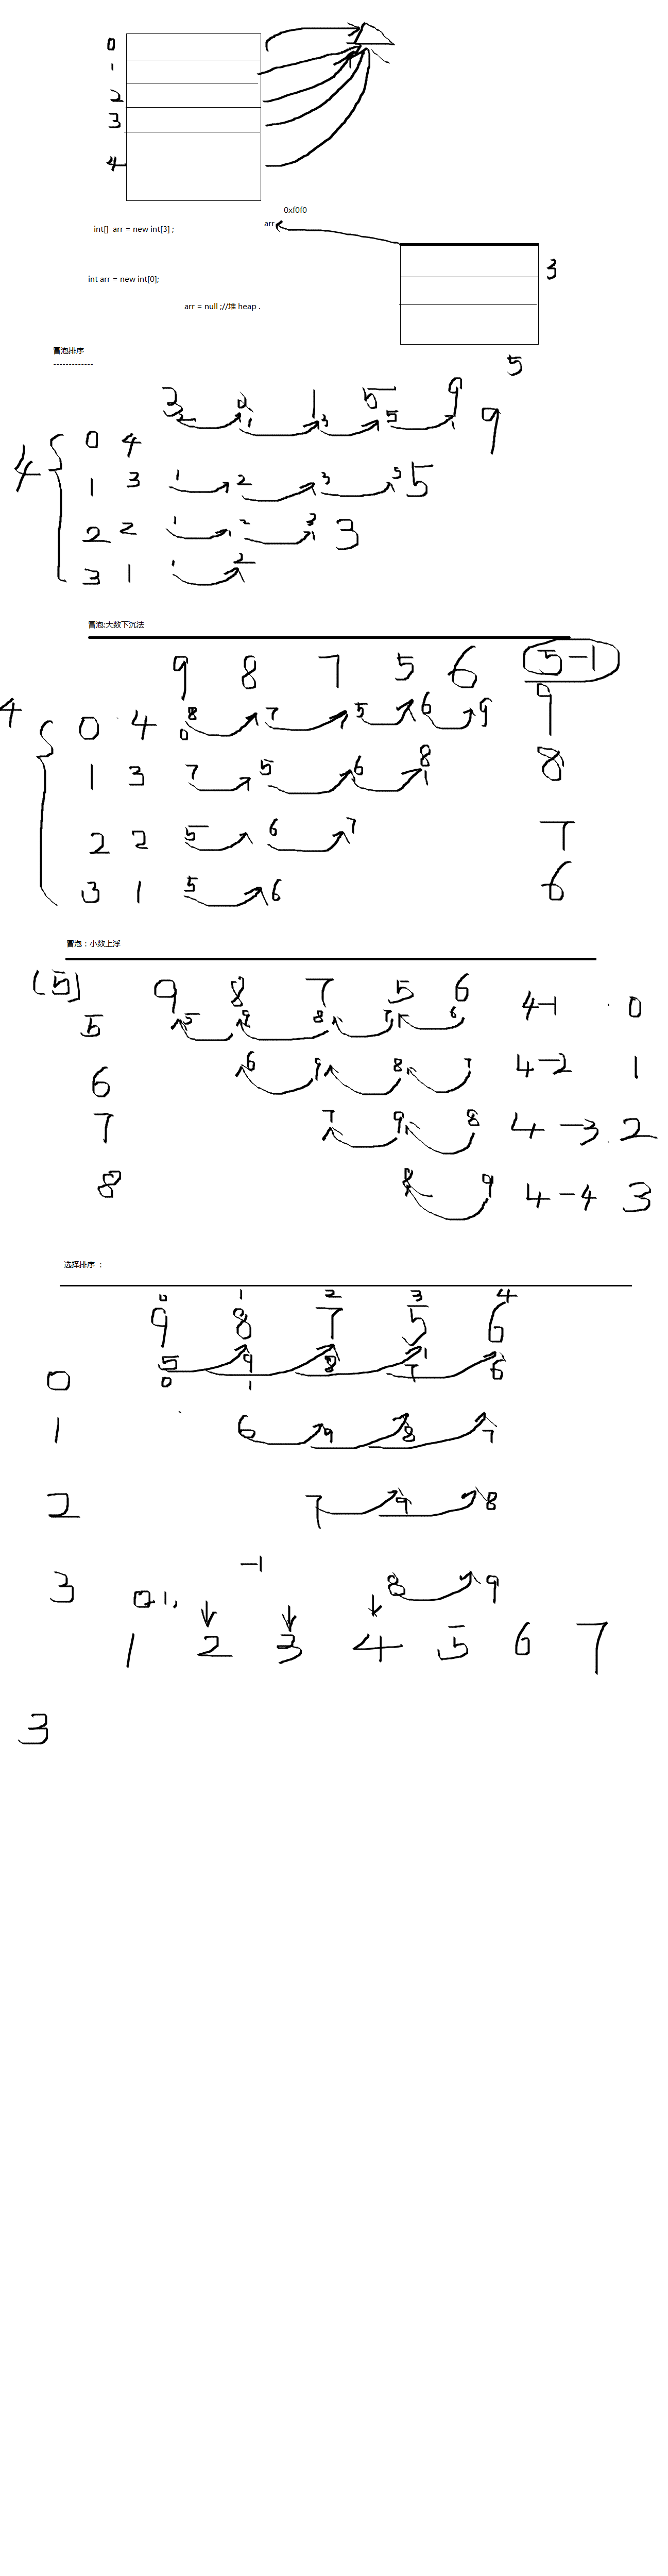 0
1
2
3
4
0xf0f0
int[] arr = new int[3] ;
arr
3
int arr = new int[0];
arr = null ;//堆 heap .
冒泡排序
-------------
5
3 2 1 5 9
2 1 3 5 9
4
0 4
1 3 1 2 3 5 5
2 2 1 2 3 3
3 1 1 2
冒泡:大数下沉法
9 8 7 5 6 5-1
4
0 4 8 7 5 6 9 9
1 3 7 5 6 8 8
2 2 5 6 7 7
3 1 5 6 6
冒泡：小数上浮
[5] 9 8 7 5 6 4-1 0
5 5 9 8 7 6
6 6 9 8 7 4-2 1
7 7 9 8 4-3 2
8 8 9 4-4 3
选择排序 ：
0 1 2 3 4
9 8 7 5 6
5 9 8 7 6
0 0 1
1 6 9 8 7
2 7 9 8
-1
3 0 1, 8 9
1 2 3 4 5 6 7
3